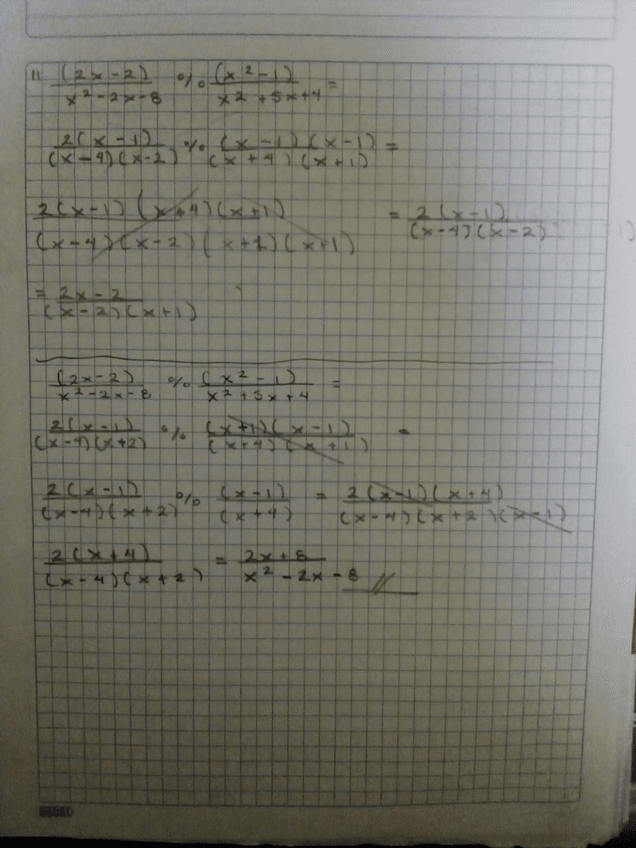 11 (2x-2)/x²-2x-8 % (x²-1)/x²+5x+4 =
2(x-1)/(x-4)(x-2) % (x-1)(x-1)/(x+4)(x+1) =
2(x-1)(x+4)(x+1)/(x-4)(x-2)(x+1)(x+1) = 2(x-1)/(x-4)(x-2)
= 2x-2/(x-2)(x+1)
(2x-2)/x²-2x-8 % (x²-1)/x²+5x+4 =
2(x-1)/(x-4)(x+2) % (x+1)(x-1)/(x+4)(x+1) =
2(x-1)/(x-4)(x+2) % (x-1)/(x+4) = 2(x-1)(x+4)/(x-4)(x+2)(x-1)
2(x+4)/(x-4)(x+2) = 2x+8/x²-2x-8 //